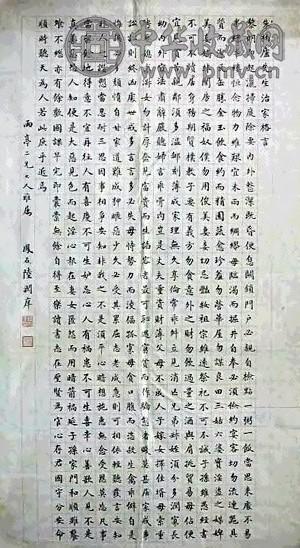 朱柏廬先生治家格言
黎明即起灑掃庭除要內外整潔既昏便息關鎖門戶必親自檢點一粥一飯當思來處不易
半絲半縷恆念物力維艱宜未雨而綢繆毋臨渴而掘井自奉必須儉約宴客切勿流連器具
質而潔瓦缶勝金玉飲食約而精園蔬愈珍饈勿營華屋勿謀良田三姑六婆實淫盜之媒婢
美妾嬌非閨房之福奴僕勿用俊美妻妾切忌豔妝祖宗雖遠祭祀不可不誠子孫雖愚經書
不可不讀居身務期質樸教子要有義方勿貪意外之財勿飲過量之酒與肩挑貿易毋佔便
宜見貧苦親鄰須多溫卹刻薄成家理無久享倫常乖舛立見消亡兄弟叔姪須分多潤寡長
幼內外宜法肅辭嚴聽婦言乖骨肉豈是丈夫重貲財薄父母不成人子嫁女擇佳壻毋索重
聘娶媳求淑女勿計厚奩見富貴而生諂容者最可恥遇貧窮而作驕態者賤莫甚居家戒爭
訟訟則終凶處世戒多言言多必失勿恃勢力而凌逼孤寡毋貪口腹而恣殺生禽乖僻自是
悔誤必多頹惰自甘家道難成狎暱惡少久必受其累屈志老成急則可相依輕聽發言安知
非人之譖愬當忍耐三思因事相爭安知非我之不是須平心暗想施惠勿念受恩莫忘凡事
當留餘地得意不宜再往人有喜慶不可生妒忌心人有禍患不可生喜幸心善欲人見不是
真善惡恐人知便是大惡見色而起淫心報在妻女匿怨而用暗箭禍延子孫家門和順雖饔
飧不繼亦有餘歡國課早完即囊橐無餘自得至樂讀書志在聖賢為官心存君國守分安命
順時聽天為人若此庶乎近焉
雨亭二兄大人雅屬 鳳石陸潤庠